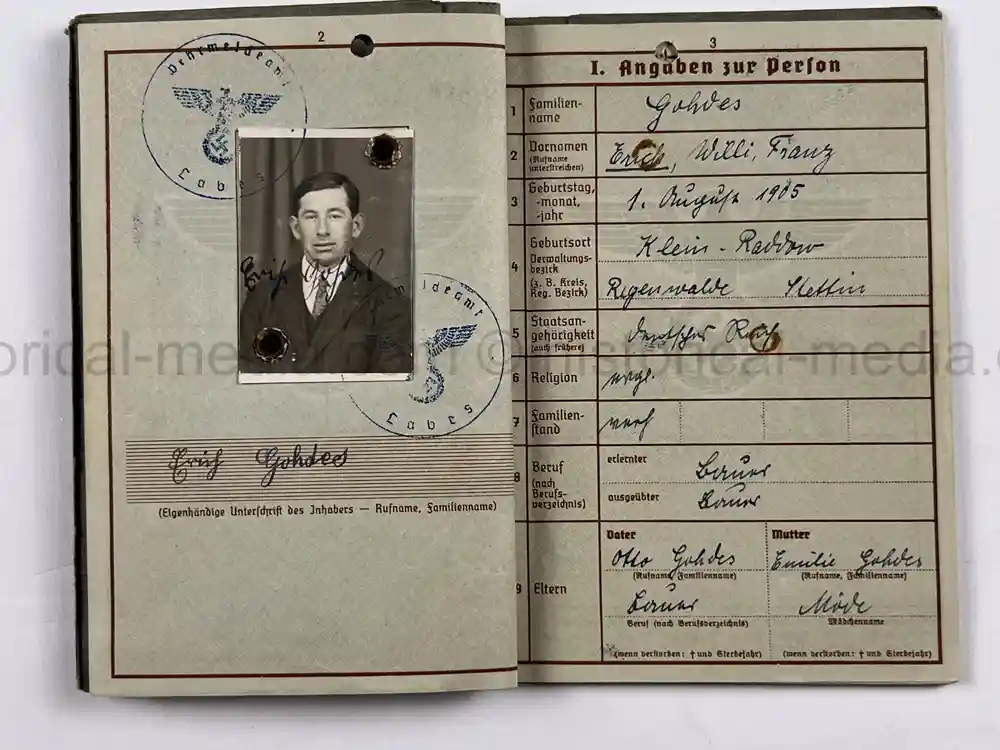 2
Wehrmeldeamt
Labes
Erich Gohdes
Wehrmeldeamt
Labes
Erich Gohdes
(Eigenhändige Unterschrift des Inhabers — Rufname, Familienname)
3
I. Angaben zur Person
1 Familien-
name
Gohdes
2 Vornamen
(Rufname
unterstreichen)
Erich, Willi, Franz
3 Geburtstag,
-monat,
-jahr
1. August 1905
4 Geburtsort
Verwaltungs-
bezirk
(z. B. Kreis,
Reg. Bezirk)
Klein-Raddow
Regenwalde Stettin
5 Staatsan-
gehörigkeit
(auch frühere)
deutsches Reich
6 Religion
evgl.
7 Familien-
stand
verh
8 Beruf
(nach
Berufs-
verzeichnis)
erlernter
Bauer
ausgeübter
Bauer
9 Eltern
Vater
Otto Gohdes
(Rufname, Familienname)
Bauer
Beruf (nach Berufsverzeichnis)
(wenn verstorben: † und Sterbejahr)
Mutter
Emilie Gohdes
(Rufname, Familienname)
Möde
Mädchenname
(wenn verstorben: † und Sterbejahr)
historical-media.com